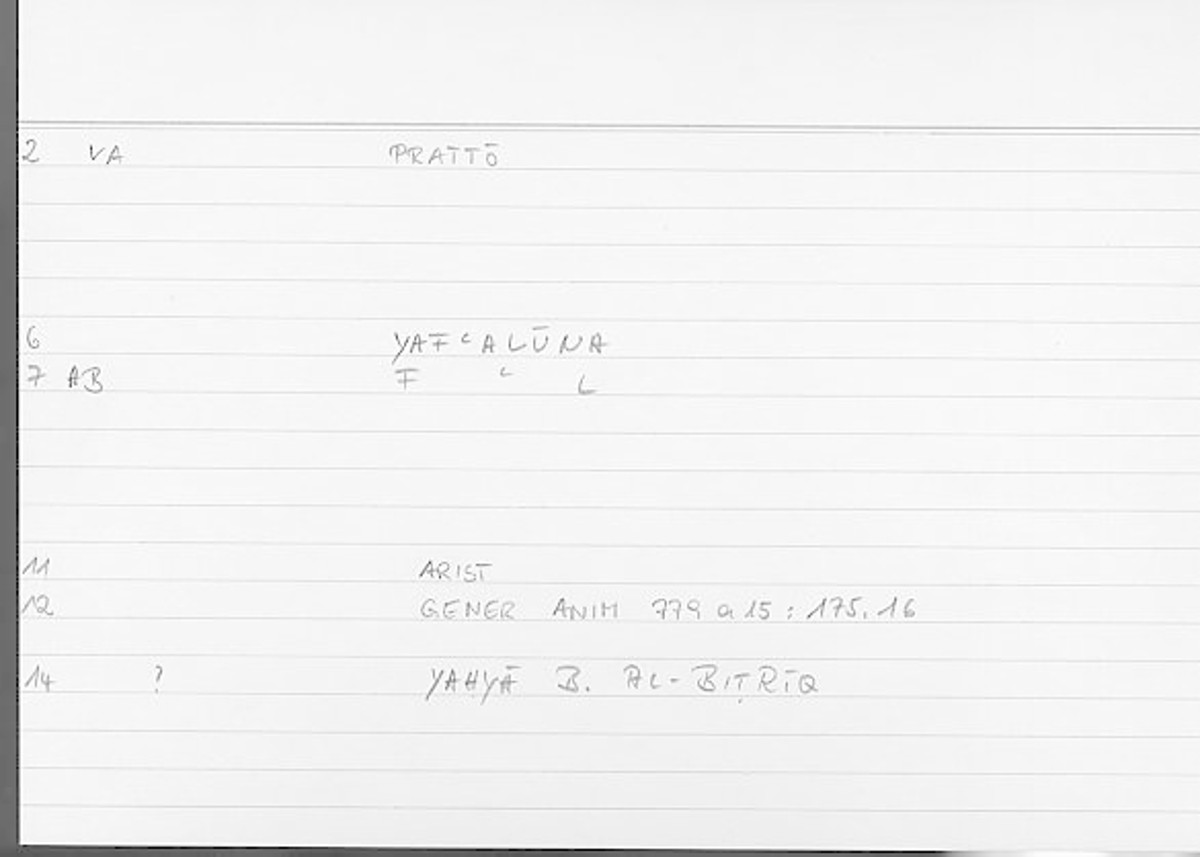 2 VA PRATTŌ
6 YAFʿALŪNA
7 AB F ʿ L
11 ARIST
12 GENER ANIM 779 a 15 : 175.16
14 ? YAḤYĀ B. AL-BIṬRĪQ